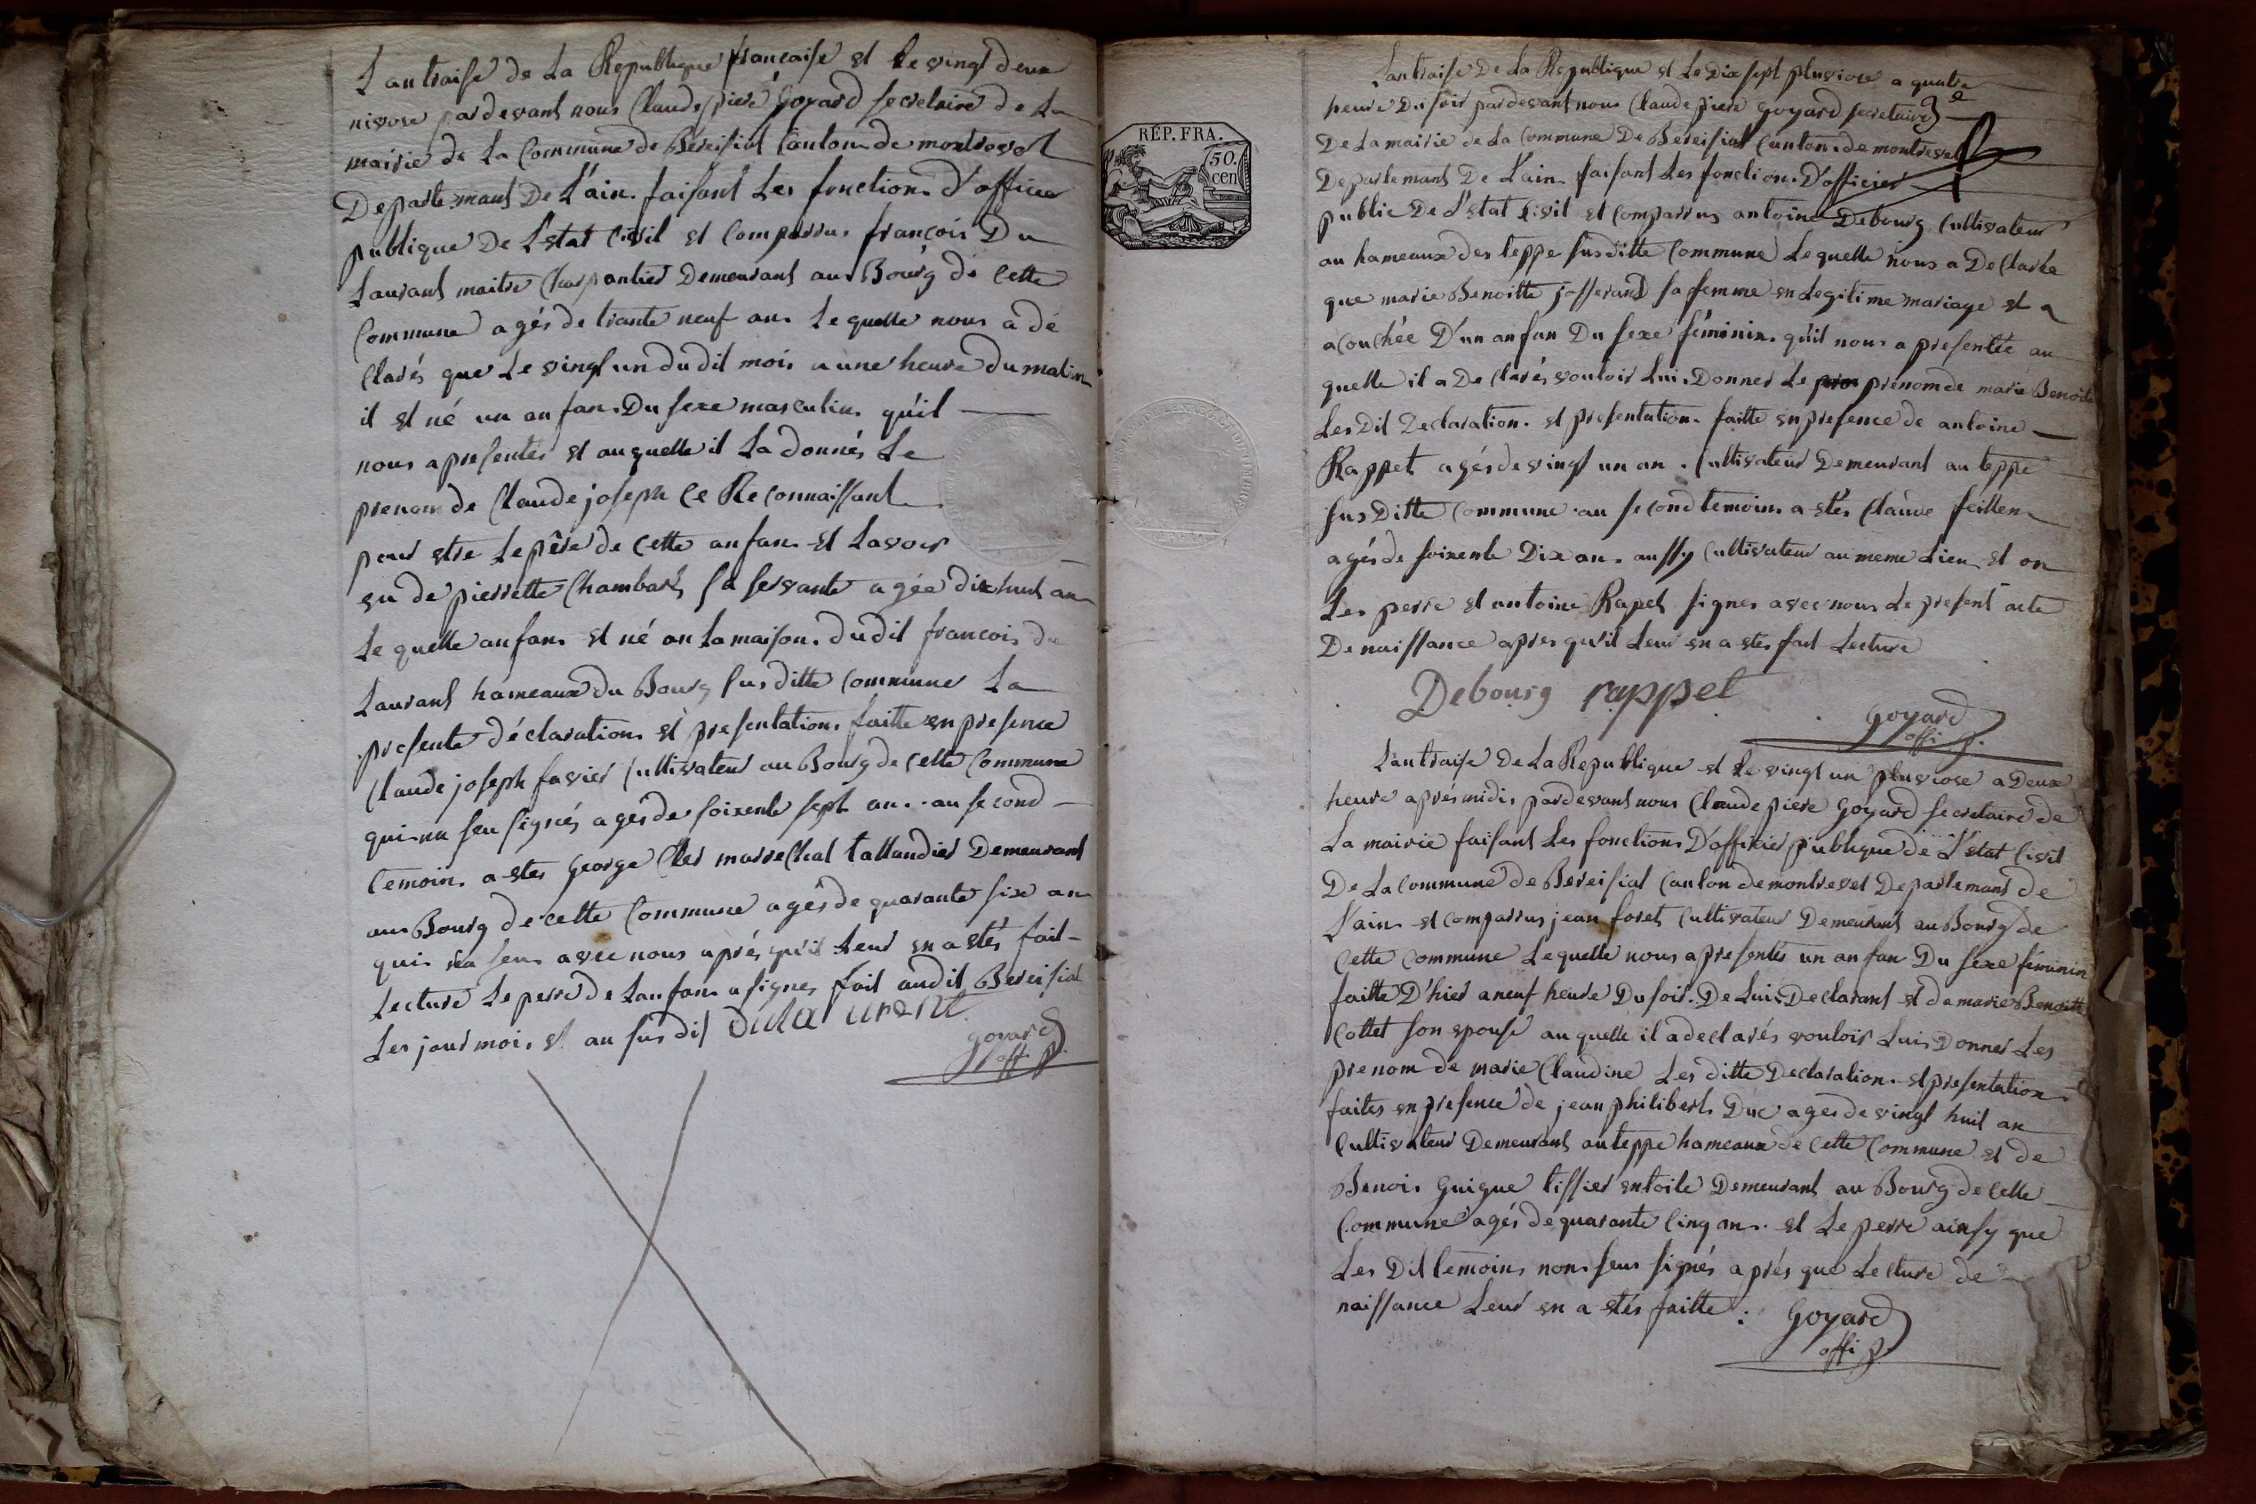 L'antraise de La Republique francaise et le vingt deux
nivose pardevant nous Claude piere Goyard secretaire de La
mairie de La Commune de Béreisiat Canton de montrevel
Departemant De L'ain faisant Les fonction D'officier
publique De L'estat Civil et Comparrus françois Du
Laurant maitre Charpantier Demeurant au Bourg de Cette
Commune agés de trante neuf ans Lequelle nous a dé
clarés que Le vingt un dudit mois a une heure du matin
il et né un anfan Du sexe masculin qu'il
nous a presentés et auquelle il La donnés Le
prenom de Claude joseph Ce Reconnaissant
pour estre Le pêre de Cette anfan et Lavoir
eu de pierrette Chambard Sa servante agée dixhuit an
Le quelle anfan et né an La maison dudit francois du
Laurant hameaux du Bourg susditte Commune La
presente déclaration et presentation faitte en presence
Claude joseph favier Cultivateur au Bourg de Cette Commune
qui na seu signés agés de soixente sept an au second
temoin a estes George Cler marrechal tallandier Demeurant
au Bourg de cette Commune agés de quarante six an
qui na seu avec nous aprés qu'il Leur en a estés fait
Lecture Le perre de Lanfan a signes fait audit Bereisiat
Les jour mois et an susdit Dulaurent
Goyard
offi p.
RÉP. FRA.
50.
cen
L'antraise De La Republique et Le Dix sept pluviose a quatre
heure Du soir pardevant nous Claude piere Goyard secretaire
De La mairie de La Commune De Bereisiat Canton de montrevel
Departemant De L'ain faisant Les fonction D'officier
public De L'estat Civil et Comparrus antoine Debourg Cultivateur
au hameaux des teppe susditte Commune Lequelle nous a Declarée
que marie Benoitte josserand sa femme en Legitime mariage et a
acouchée D'un anfan Du sexe féminin qu'il nous a presentée au
quelle il a Declarés vouloir Lui Donner Le prenom de marie Benoite
Les Dit Declaration et presentation faitte en presence de antoine
Rappet agés de vingt un an Cultivateur Demeurant au teppe
susditte Commune au second temoin a estés Claude feillen
agés de soixente Dix an aussy Cultivateur au meme Lieu et on
Les perre et antoine Rapet signes avec nous Le present acte
De naissance apres qu'il Leur en a estes fait Lecture
Debourg rappet
Goyard
offi p.
L'antraise De La Republique et le vingt un pluviose a Deux
heure aprés midi pardevant nous Claude piere Goyard secretaire de
La mairie faisant Les fonctions D'officier publique de L'estat Civil
De La Commune de Bereisiat Canton de montrevel Departemant de
L'ain et Comparrus jean foret Cultivateur Demeurant au Bourg de
Cette Commune Lequelle nous a presentés un anfan Du sexe féminin
faitte D'hier a neuf heure Du soir De Lui Declarant et de marie Benoitte
Cottet son epouse au quelle il a declarés vouloir Lui Donner Les
prenom de marie Claudine Les ditte Declaration et presentation
faites en presence de jean philibert Duc ages de vingt huit an
Cultivateur Demeurant au teppe hameaux de Cette Commune et de
Benoi Guigue tissier en toile Demeurant au Bourg de Cette
Commune agés de quarante Cinq an et Le perre ainsy que
Les Dit temoin non seu signés aprés que Lecture de
naissance Leur en a estés faitte : Goyard
offi p.